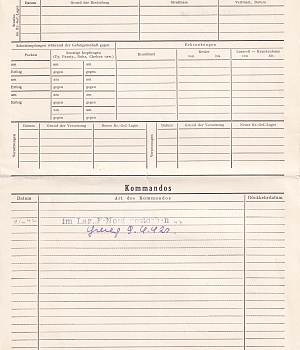 Datum
Grund der Bestrafung
Strafmass
Verbüsst, Datum
Schutzimpfungen während der Gefangenschaft gegen
Erkrankungen
Pocken
Sonstige Impfungen
(Ty. Paraty., Ruhr, Cholera usw.)
Krankheit
Revier
Lazarett — Krankenhaus
von
bis
von
bis
am
am
gegen
Erfolg
am
gegen
am
am
gegen
Erfolg
am
gegen
am
am
gegen
Erfolg
am
gegen
Datum
Grund der Versetzung
Neues Kr.-Gef.-Lager
Datum
Grund der Versetzung
Neues Kr.-Gef.-Lager
Versetzungen
Versetzungen
Kommandos
Datum
Art des Kommandos
Rückkehrdatum
im Laz.